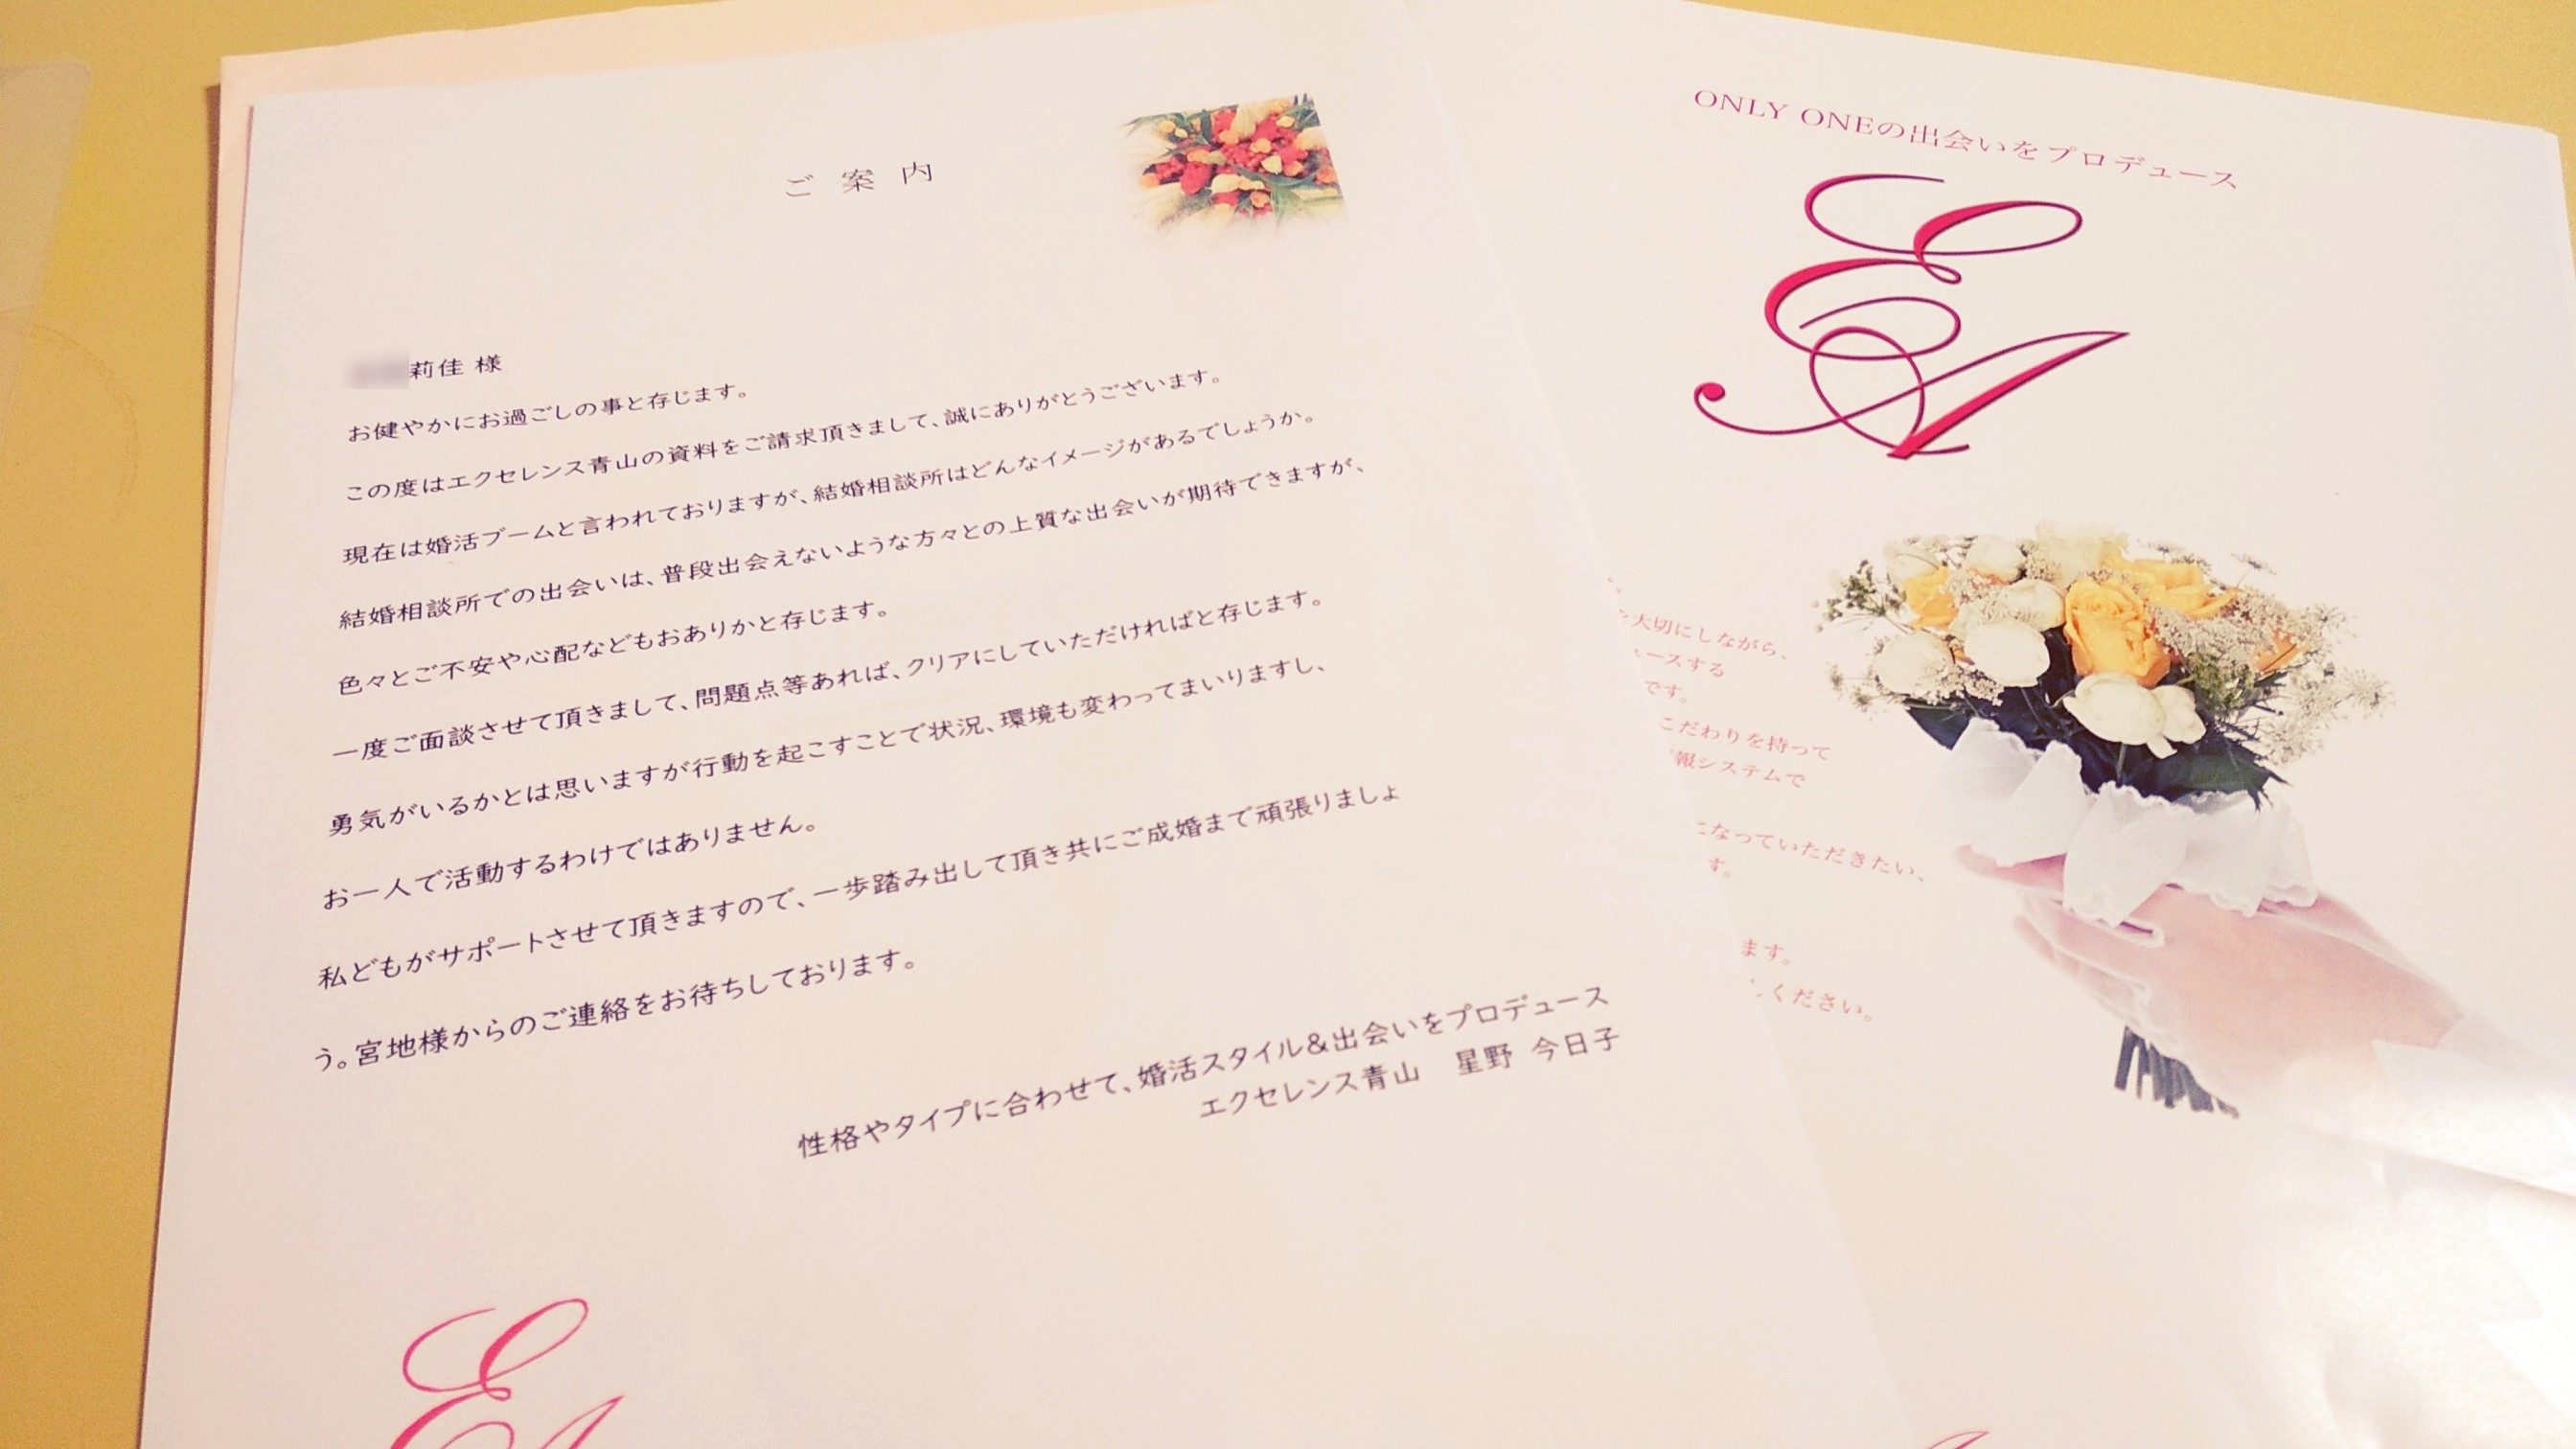 ご案内
莉佳 様
お健やかにお過ごしの事と存じます。
この度はエクセレンス青山の資料をご請求頂きまして、誠にありがとうございます。
現在は婚活ブームと言われておりますが、結婚相談所はどんなイメージがあるでしょうか。
結婚相談所での出会いは、普段出会えないような方々との上質な出会いが期待できますが、
色々とご不安や心配などもおありかと存じます。
一度ご面談させて頂きまして、問題点等あれば、クリアにしていただければと存じます。
勇気がいるかとは思いますが行動を起こすことで状況、環境も変わってまいりますし、
お一人で活動するわけではありません。
私どもがサポートさせて頂きますので、一歩踏み出して頂き共にご成婚まで頑張りましょ
う。宮地様からのご連絡をお待ちしております。
性格やタイプに合わせて、婚活スタイル&出会いをプロデュース
エクセレンス青山 星野 今日子
EA
ONLY ONEの出会いをプロデュース
EA
大切にしながら、
ースする
です。
こだわりを持って
報システムで
になっていただきたい、
す。
ます。
ください。